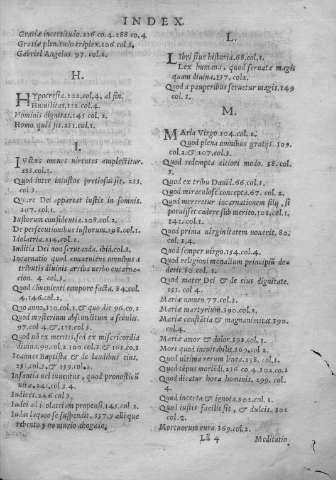 INDEX.
Gratiæ incertitudo. 226 co. 4. 288 co. 4.
Gratiæ plenitudo triplex. 106. col. 2.
Gabriel Angelus. 97. col. 1.
H.
Hypocrisis. 222. col. 4. al fin.
Humilitas. 112. col. 4.
Hominis dignitas. 145 col. 2.
Homo quid sit. 231. col. 1.
I.
Iustus omnes virtutes amplectitur.
233. col. 1.
Quid inter iniustos pretiosus sit. 233.
col. 3.
Quare Dei apparet iustis in somnis.
207. col. 1.
Iustorum confidentia. 208. col. 2.
De persecutionibus iustorum. 198. col. 1.
Idolatria. 216. col. 1.
Iudicia Dei non scrutanda. ibid. col. 3.
Incarnatio quod conueniens omnibus a
tributis diuinis arctius verbo encarna-
cion. 4. col. 3.
Quod conuenienti tempore facta. 34. col.
4. 146. col. 2.
Quo anno. 120. col. 1. & quo die 96. co. 1
Quod mysterium absconditum a seculis.
97. col. 4. & 121. col. 3.
Quod nõ ex meritis, sed ex misericordia
diuina. 99. col. 2. 100. col. 3. & 101. co. 2
Ioannes Baptista & de laudibus eius.
251. col. 3. & 259. col. 2.
Infantia vel iuuentus, quod pronosticũ
vitæ. 241. col. 3. 4.
Iudices. 246. col. 3.
Iudei ad idolatriam propensi. 145. col. 2.
Iudas laqueo se suspendit. 157. y alli que
rebento y no murio ahogado.
L.
Libri sine historia. 68. col. 1.
Lex humana, quod seruatæ magis
quam diuina. 237. col. 2.
Quod a pauperibus seruetur magis. 249
col. 1.
M.
Maria Virgo. 104. col. 2.
Quod plena omnibus gratijs. 109.
col. 2. & 107. col. 3.
Quod redempta altiori modo. 58. col.
2.
Quod ex tribu Dauid. 66. col. 1.
Quod miraculose concepta. 67. col. 2.
Quod mereretur incarnationem filij, si
potuisset cadere sub merito. 102. col. 1,
142. col. 1.
Quod prima virginitatem nouerit. 80.
col. 3. 4.
Quod semper virgo. 154. col. 4.
Quod religioni monialium principiũ de-
derit 80. col. 1.
Quod mater Dei & de eius dignitate.
151. col. 4
Mariæ nomen. 77. col. 3.
Mariæ martyrium. 390. col. 2.
Mariæ constãtia & magnanimitas. 390.
col. 4.
Mariæ amor & dolor. 392. col. 1.
Mors quod ineuitabilis. 369. col. 2.
Quod vltima rerum linea. 238. col. 1.
Quod tẽpus moriẽdi. 236. co. 4. 302. co. 1
Quod dicatur hora hominis. 299. col.
4.
Quod incerta & ignota. 302. col. 1.
Quod iustis facilis sit, & dulcis. 302
col. 2.
Mortuorum cura 369. col. 2.
Ll 4
Meditatio